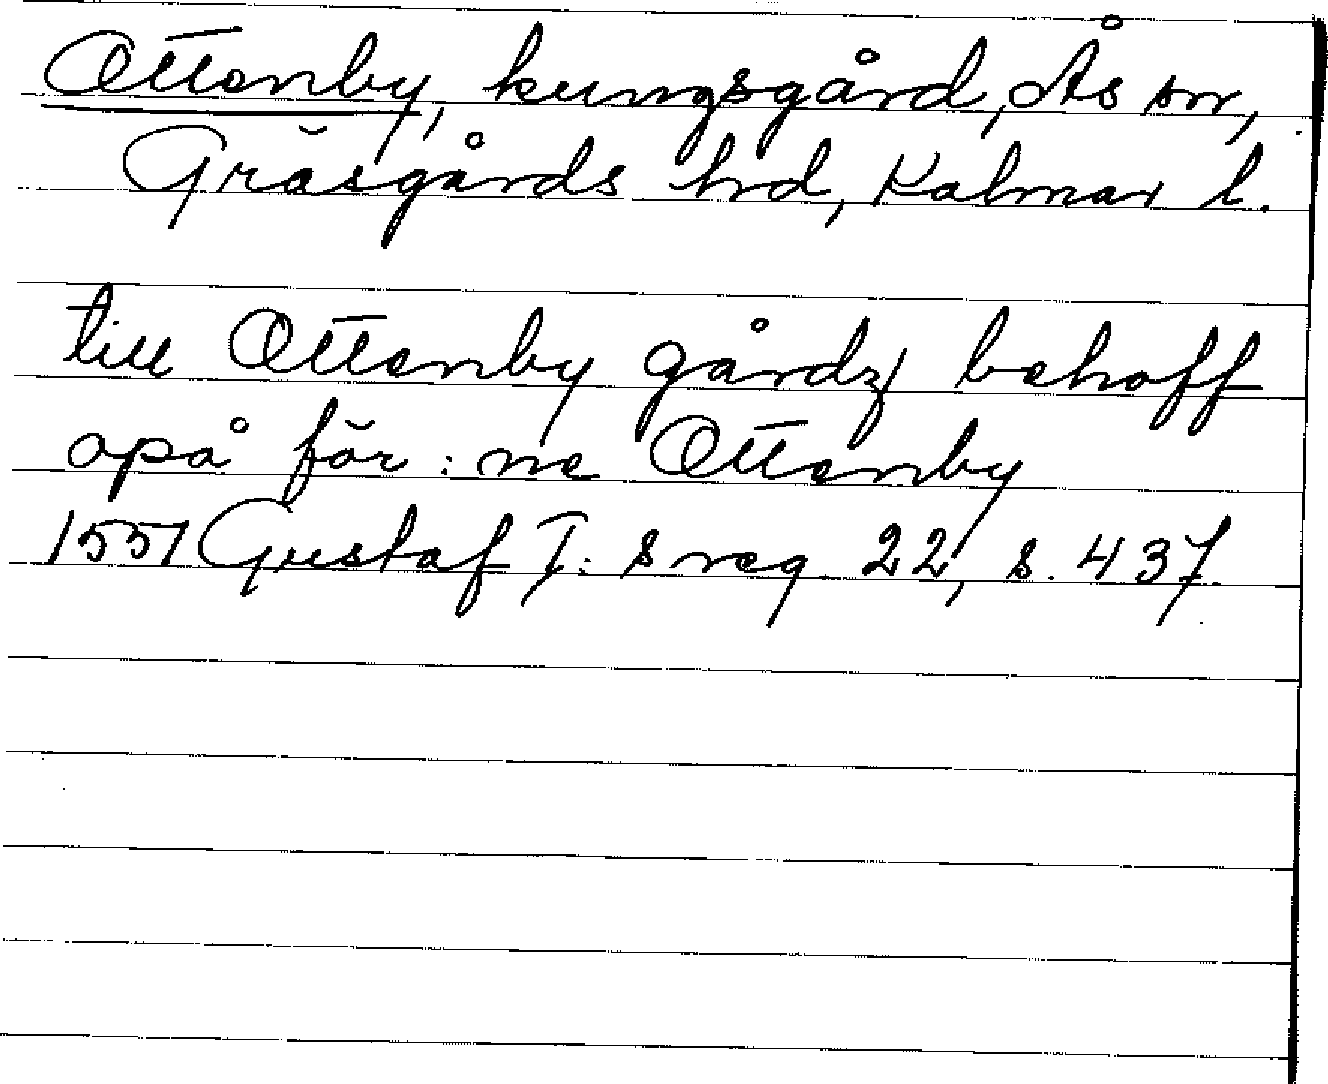 Ottenby, kungsgård, Ås sn,
Gräsgårds hrd, Kalmar l.
till Ottenby gårdz behoff
opå för:ne Ottenby
1551 Gustaf I:s reg 22, s. 437